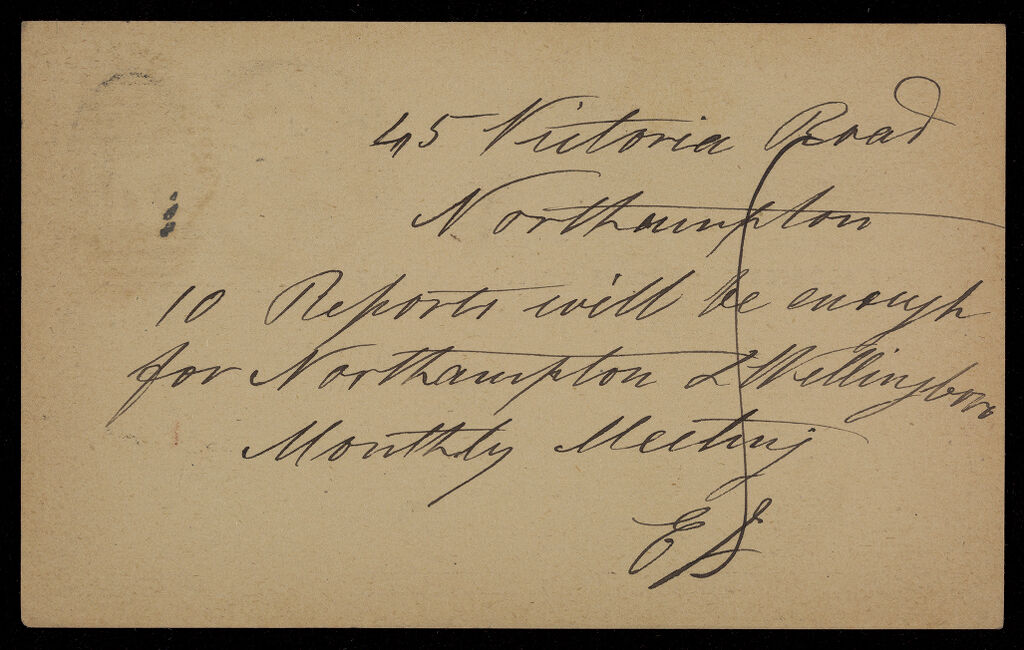 45 Victoria Road
Northampton
10 Reports will be enough
for Northampton & Wellingboro
Monthly Meeting
E S